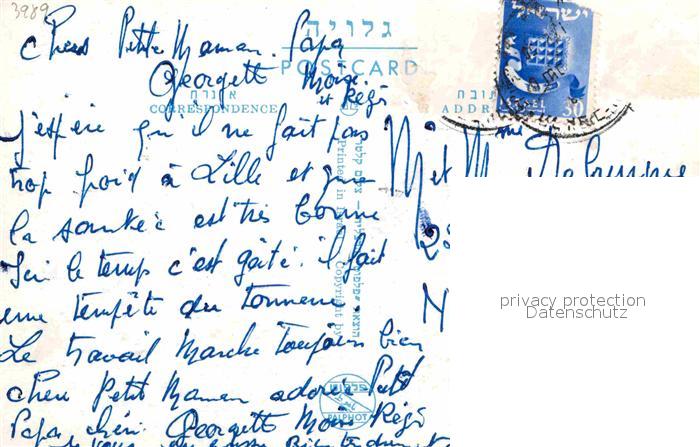 3989
גלויה
POSTCARD
אגרת
CORRESPONDENCE
כתובת
ADDRESS
ישראל
ISRAEL
30
Chers Petite Maman. Papa
Georgett Moïse
et Régi
j'espère qu'il ne fait pas
trop froid à Lille et que
la santée est très bonne
Ici le temps c'est gâté. il fait
une tempête du tonnerre
Le travail Marche toujours bien
cheri Petit Maman adorée Petit
Papa chéri Georgett Moïse Régi
M et Mme
Printed in Israel
Copyright by
PALPHOT
privacy protection
Datenschutz